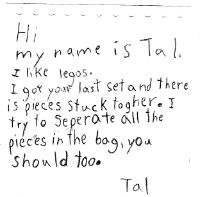 Hi
my name is Tal.
I like legos.
I got your last set and there
is pieces stuck togher. I
try to Seperate all the
pieces in the bag, you
should too.
Tal